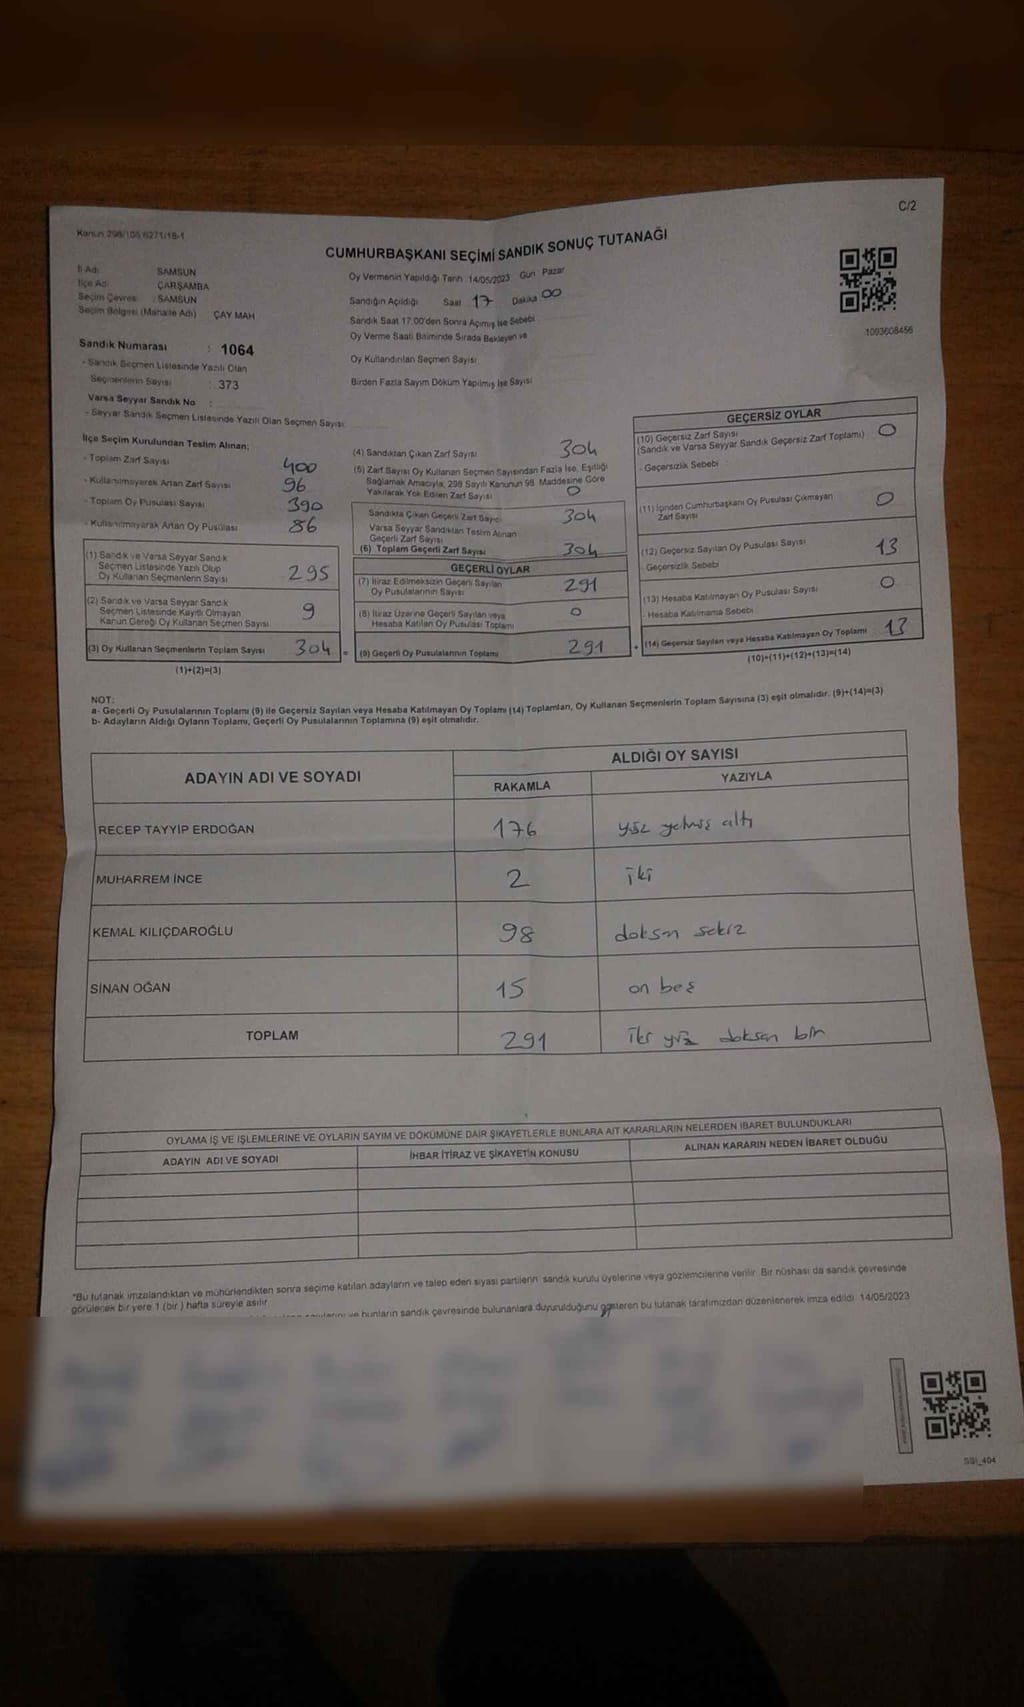 C/2
Kanun 298/105 6271/18-1
CUMHURBAŞKANI SEÇİMİ SANDIK SONUÇ TUTANAĞI
İl Adı SAMSUN
İlçe Adı ÇARŞAMBA
Seçim Çevresi : SAMSUN
Seçim Bölgesi (Mahalle Adı) ÇAY MAH
Sandık Numarası : 1064
- Sandık Seçmen Listesinde Yazılı Olan
Seçmenlerin Sayısı : 373
Varsa Seyyar Sandık No :
- Seyyar Sandık Seçmen Listesinde Yazılı Olan Seçmen Sayısı:
Oy Vermenin Yapıldığı Tarih 14/05/2023 Gün Pazar
Sandığın Açıldığı Saat 17 Dakika 00
Sandık Saat 17.00'den Sonra Açımış İse Sebebi
Oy Verme Saati Bitiminde Sırada Bekleyen ve
Oy Kullandırılan Seçmen Sayısı
Birden Fazla Sayım Döküm Yapılmış İse Sayısı
1093608456
İlçe Seçim Kurulundan Teslim Alınan;
- Toplam Zarf Sayısı 400
- Kullanılmayarak Artan Zarf Sayısı 96
- Toplam Oy Pusulası Sayısı 390
- Kullanılmayarak Artan Oy Pusulası 86
(1) Sandık ve Varsa Seyyar Sandık
Seçmen Listesinde Yazılı Olup
Oy Kullanan Seçmenlerin Sayısı 295
(2) Sandık ve Varsa Seyyar Sandık
Seçmen Listesinde Kayıtlı Olmayan
Kanun Gereği Oy Kullanan Seçmen Sayısı 9
(3) Oy Kullanan Seçmenlerin Toplam Sayısı 304 =
(1)+(2)=(3)
(4) Sandıktan Çıkan Zarf Sayısı 304
(5) Zarf Sayısı Oy Kullanan Seçmen Sayısından Fazla İse, Eşitliği
Sağlamak Amacıyla, 298 Sayılı Kanunun 98. Maddesine Göre
Yakılarak Yok Edilen Zarf Sayısı 0
Sandıkta Çıkan Geçerli Zarf Sayısı 304
Varsa Seyyar Sandıktan Teslim Alınan
Geçerli Zarf Sayısı
(6) Toplam Geçerli Zarf Sayısı 304
GEÇERLİ OYLAR
(7) İtiraz Edilmeksizin Geçerli Sayılan
Oy Pusulalarının Sayısı 291
(8) İtiraz Üzerine Geçerli Sayılan veya
Hesaba Katılan Oy Pusulası Toplamı 0
(9) Geçerli Oy Pusulalarının Toplamı 291 +
GEÇERSİZ OYLAR
(10) Geçersiz Zarf Sayısı 0
(Sandık ve Varsa Seyyar Sandık Geçersiz Zarf Toplamı)
- Geçersizlik Sebebi :
(11) İçinden Cumhurbaşkanı Oy Pusulası Çıkmayan
Zarf Sayısı 0
(12) Geçersiz Sayılan Oy Pusulası Sayısı 13
- Geçersizlik Sebebi
(13) Hesaba Katılmayan Oy Pusulası Sayısı 0
- Hesaba Katılmama Sebebi
(14) Geçersiz Sayılan veya Hesaba Katılmayan Oy Toplamı 13
(10)+(11)+(12)+(13)=(14)
NOT:
a- Geçerli Oy Pusulalarının Toplamı (9) ile Geçersiz Sayılan veya Hesaba Katılmayan Oy Toplamı (14) Toplamları, Oy Kullanan Seçmenlerin Toplam Sayısına (3) eşit olmalıdır. (9)+(14)=(3)
b- Adayların Aldığı Oyların Toplamı, Geçerli Oy Pusulalarının Toplamına (9) eşit olmalıdır.
ADAYIN ADI VE SOYADI ALDIĞI OY SAYISI
RAKAMLA YAZIYLA
RECEP TAYYİP ERDOĞAN 176 yüz yetmiş altı
MUHARREM İNCE 2 iki
KEMAL KILIÇDAROĞLU 98 doksan sekiz
SİNAN OĞAN 15 on beş
TOPLAM 291 iki yüz doksan bir
OYLAMA İŞ VE İŞLEMLERİNE VE OYLARIN SAYIM VE DÖKÜMÜNE DAİR ŞİKAYETLERLE BUNLARA AİT KARARLARIN NELERDEN İBARET BULUNDUKLARI
ADAYIN ADI VE SOYADI İHBAR İTİRAZ VE ŞİKAYETİN KONUSU ALINAN KARARIN NEDEN İBARET OLDUĞU
*Bu tutanak imzalandıktan ve mühürlendikten sonra seçime katılan adayların ve talep eden siyasi partilerin sandık kurulu üyelerine veya gözlemcilerine verilir. Bir nüshası da sandık çevresinde
görülecek bir yere 1 (bir) hafta süreyle asılır.
ve bunların sandık çevresinde bulunanlara duyurulduğunu gösteren bu tutanak tarafımızdan düzenlenerek imza edildi. 14/05/2023
SSI_404